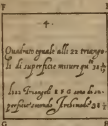 F
.4.
Quadrato eguale alli 22 triango-
li di superficie misure qu.
li 22 Triangoli E F G sono di su-
perficie secondo Archimede 38 1/2
G